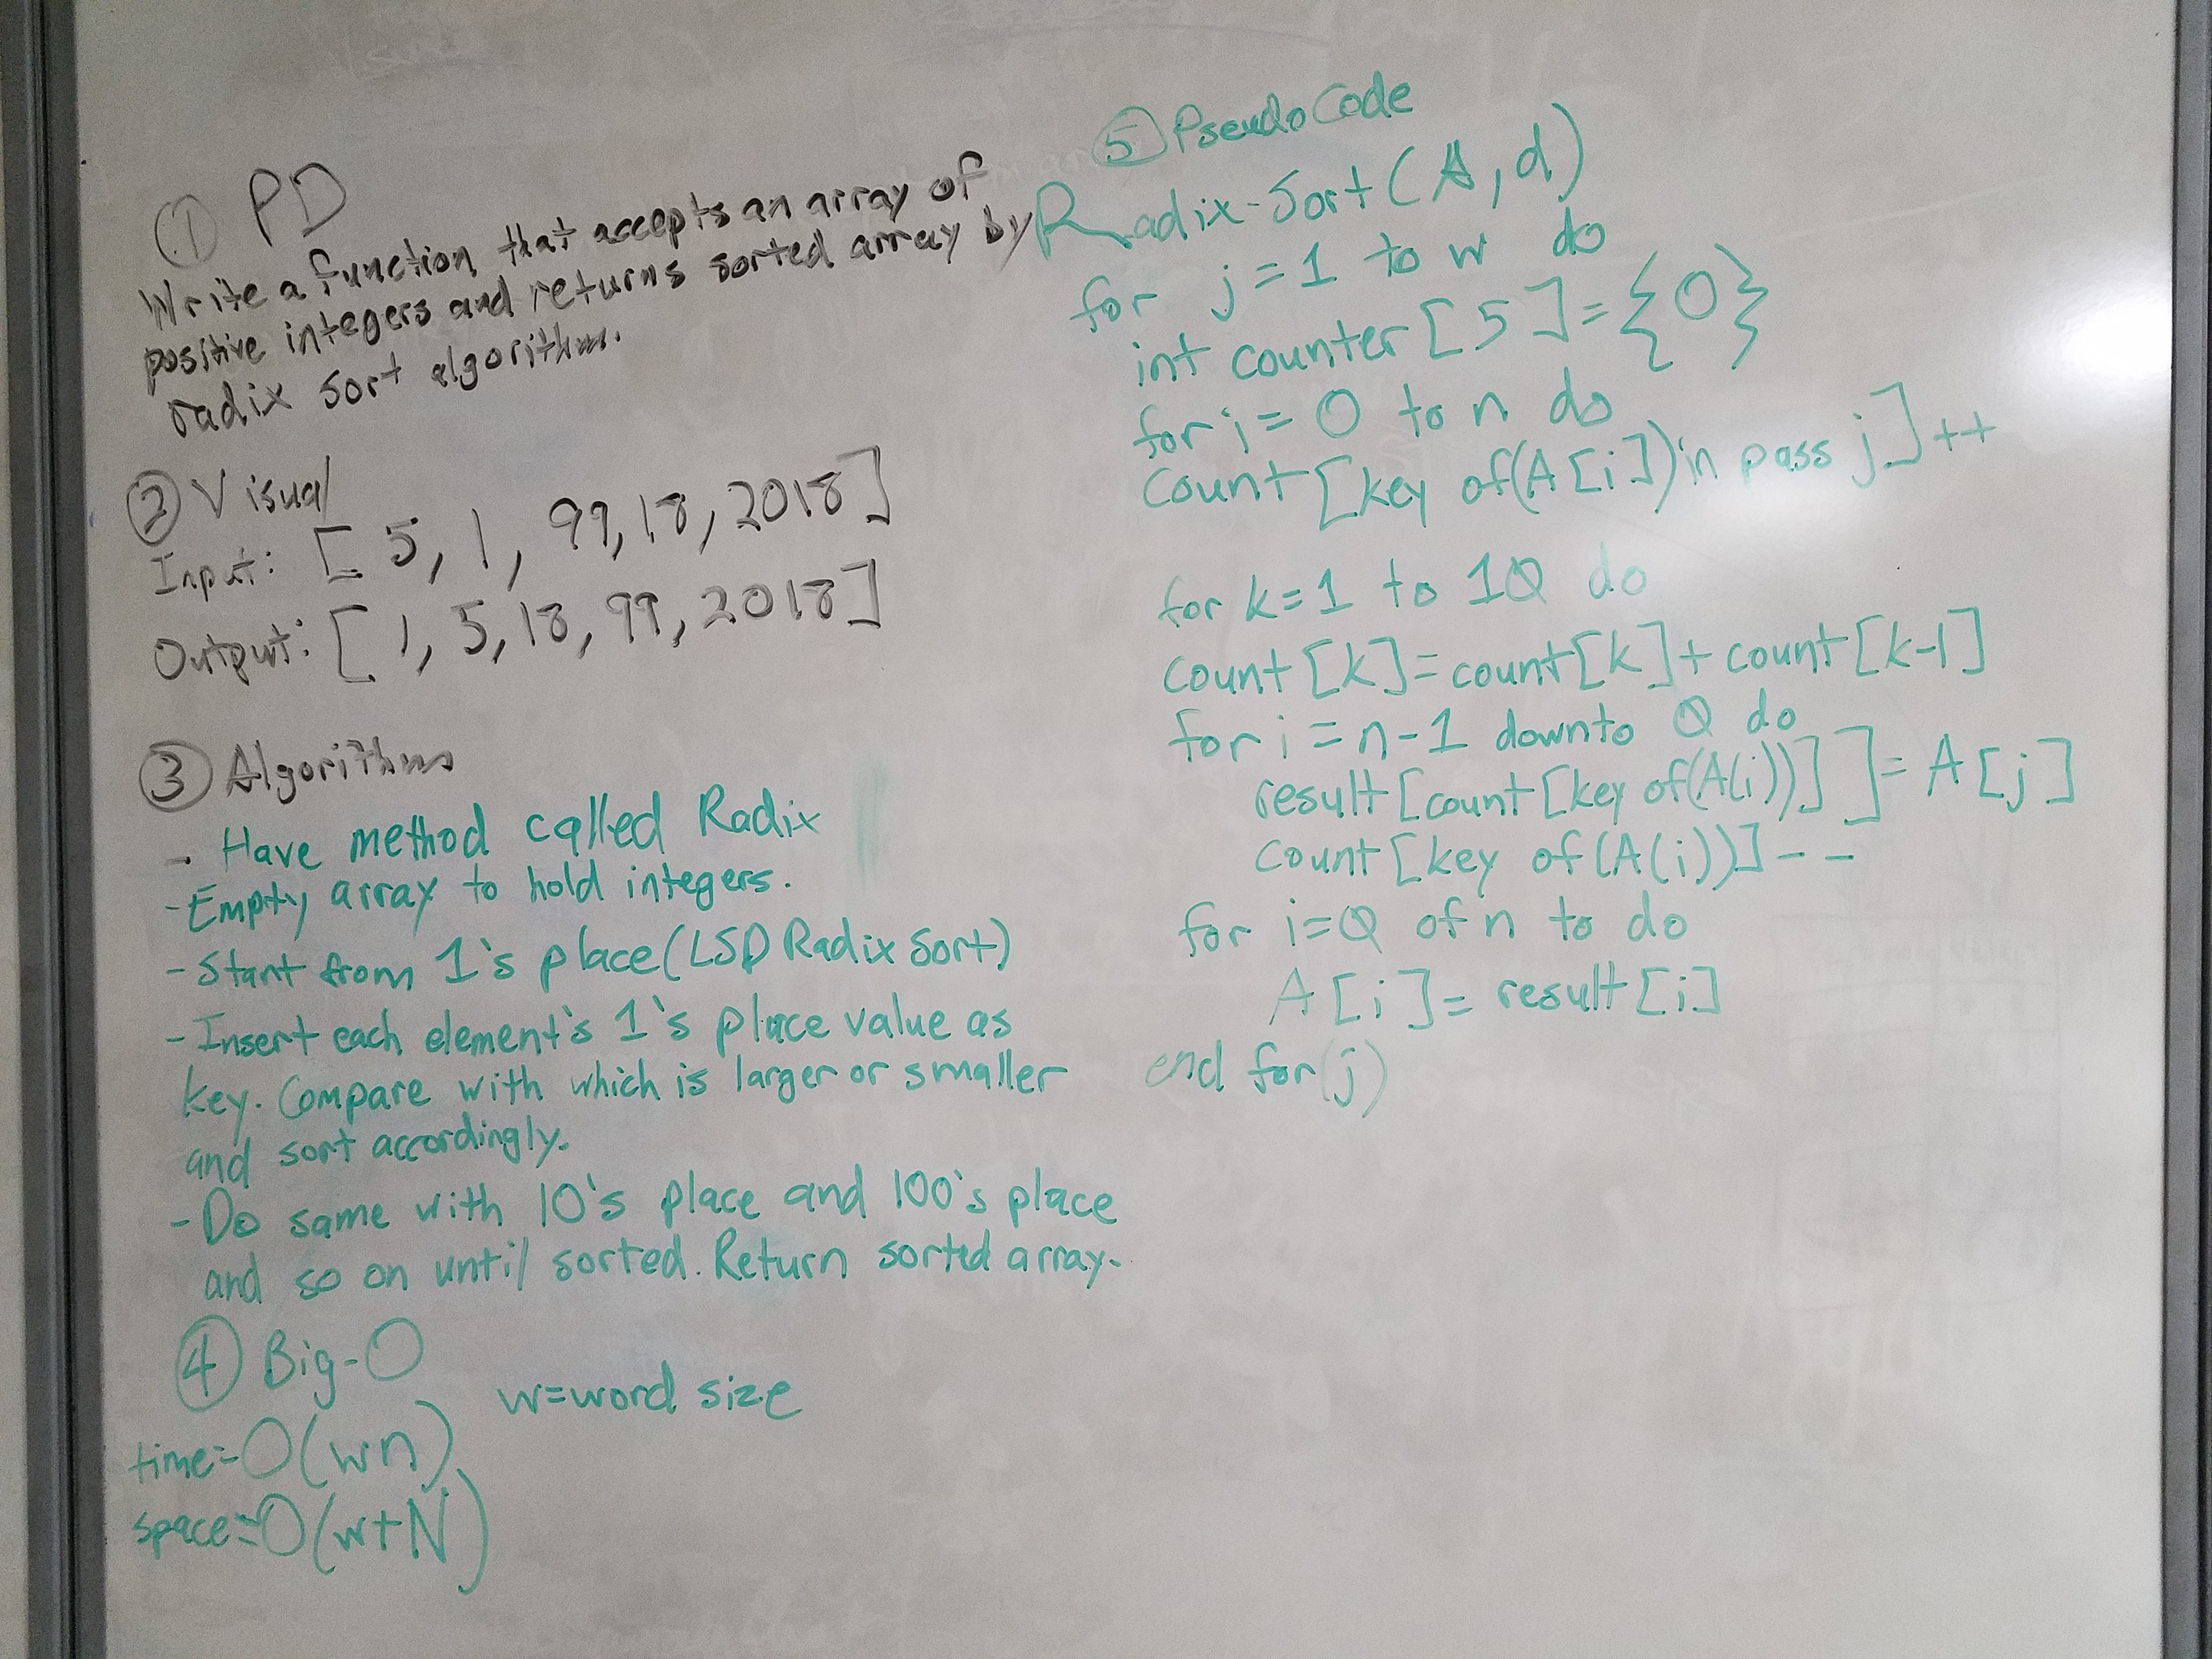 ① PD
Write a function that accepts an array of
positive integers and returns sorted array by
radix sort algorithm.
② Visual
Input: [5, 1, 99, 18, 2018]
Output: [1, 5, 18, 99, 2018]
③ Algorithm
- Have method called Radix
- Empty array to hold integers.
- Start from 1's place (LSD Radix Sort)
- Insert each element's 1's place value as
key. Compare with which is larger or smaller
and sort accordingly.
- Do same with 10's place and 100's place
and so on until sorted. Return sorted array.
④ Big-O
w=word size
time=O(wn)
space=O(w+N)
⑤ Pseudo Code
Radix-Sort(A, d)
for j=1 to w do
int counter[5]={0}
for i=0 to n do
Count[key of(A[i]) in pass j]++
for k=1 to 10 do
Count[k]=count[k]+count[k-1]
for i=n-1 downto 0 do
result[count[key of(A(i))]]=A[j]
Count[key of(A(i))]--
for i=0 of n to do
A[i]=result[i]
end for(j)